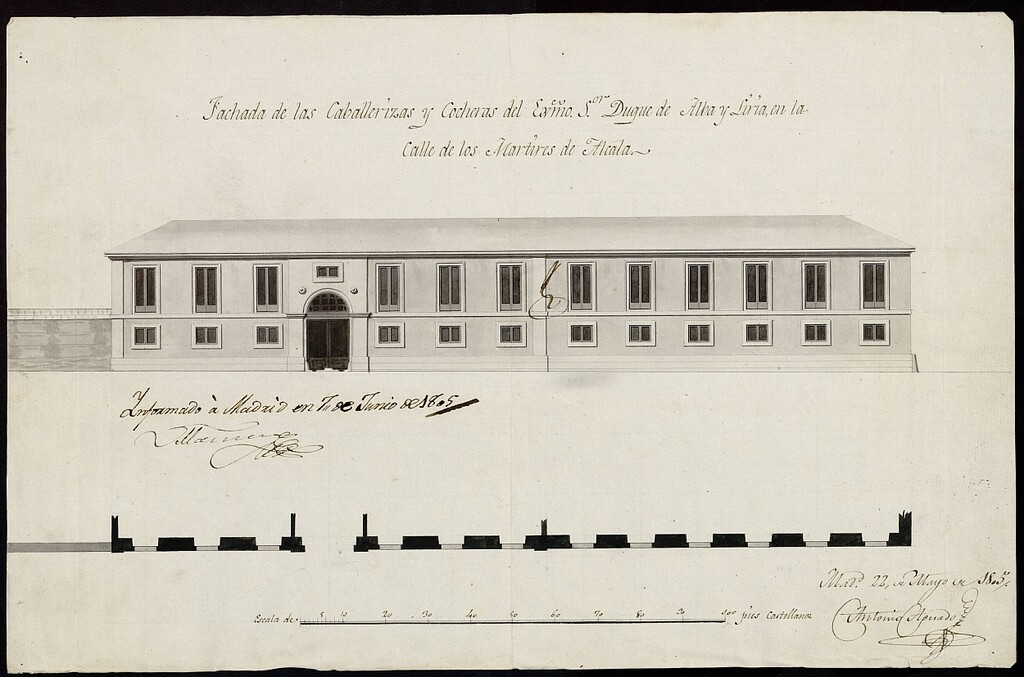 Fachada de las Caballerizas y Cocheras del Exmo. Sor Duque de Alba y Liria, en la
Calle de los Martires de Alcala.
Ynformado à Madrid en 7 de Junio de 1805
Escala de 5 10 20 30 40 50 60 70 80 90 100 pies Castellanos
Madd. 22, de Mayo de 1805
Antonio Aguado